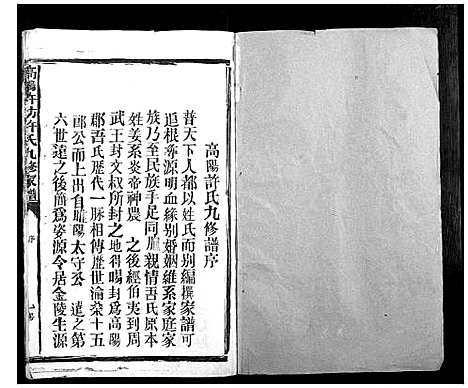 高陽許氏九修譜序
普天下人都以姓氏而别編撰家譜可
追根尋源明血緣别婚姻維系家庭家
族乃至民族手足同胞親情吾氏原本
姓姜系炎帝神農　之後經伯夷到周
武王封文叔所封之地得暘封爲高陽
郡吾氏歷代一脉相傳歷世渝柰十五
郎公而上出自睢陽太守公　遠之第
六世遠之後啬爲姿源令居金陵生源
高陽許坊許氏九修家譜
序